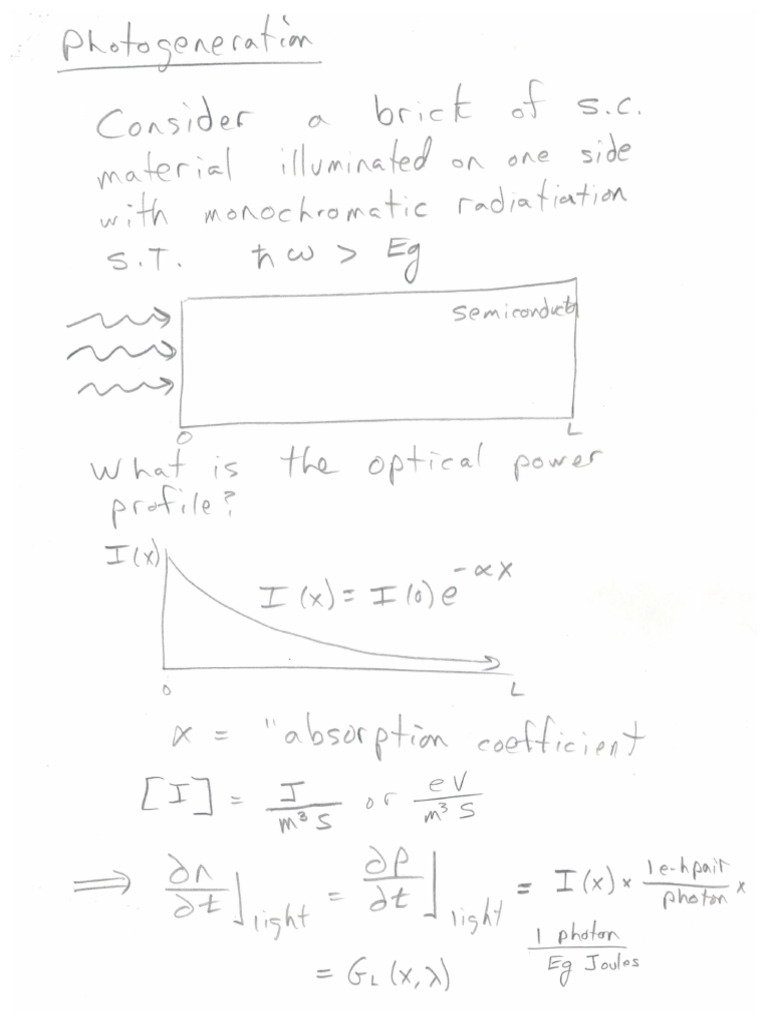 Photogeneration
Consider a brick of s.c.
material illuminated on one side
with monochromatic radiatiation
S.T. ħω > Eg
Semiconductor
0 L
What is the optical power
profile?
I(x)
I(x) = I(0)e^{-αx}
0 L
α = "absorption coefficient
[I] = J/m³s or eV/m³s
⟹ ∂n/∂t]light = ∂p/∂t]light = I(x) × 1 e-h pair/photon ×
1 photon/Eg Joules
= G_L(x,λ)